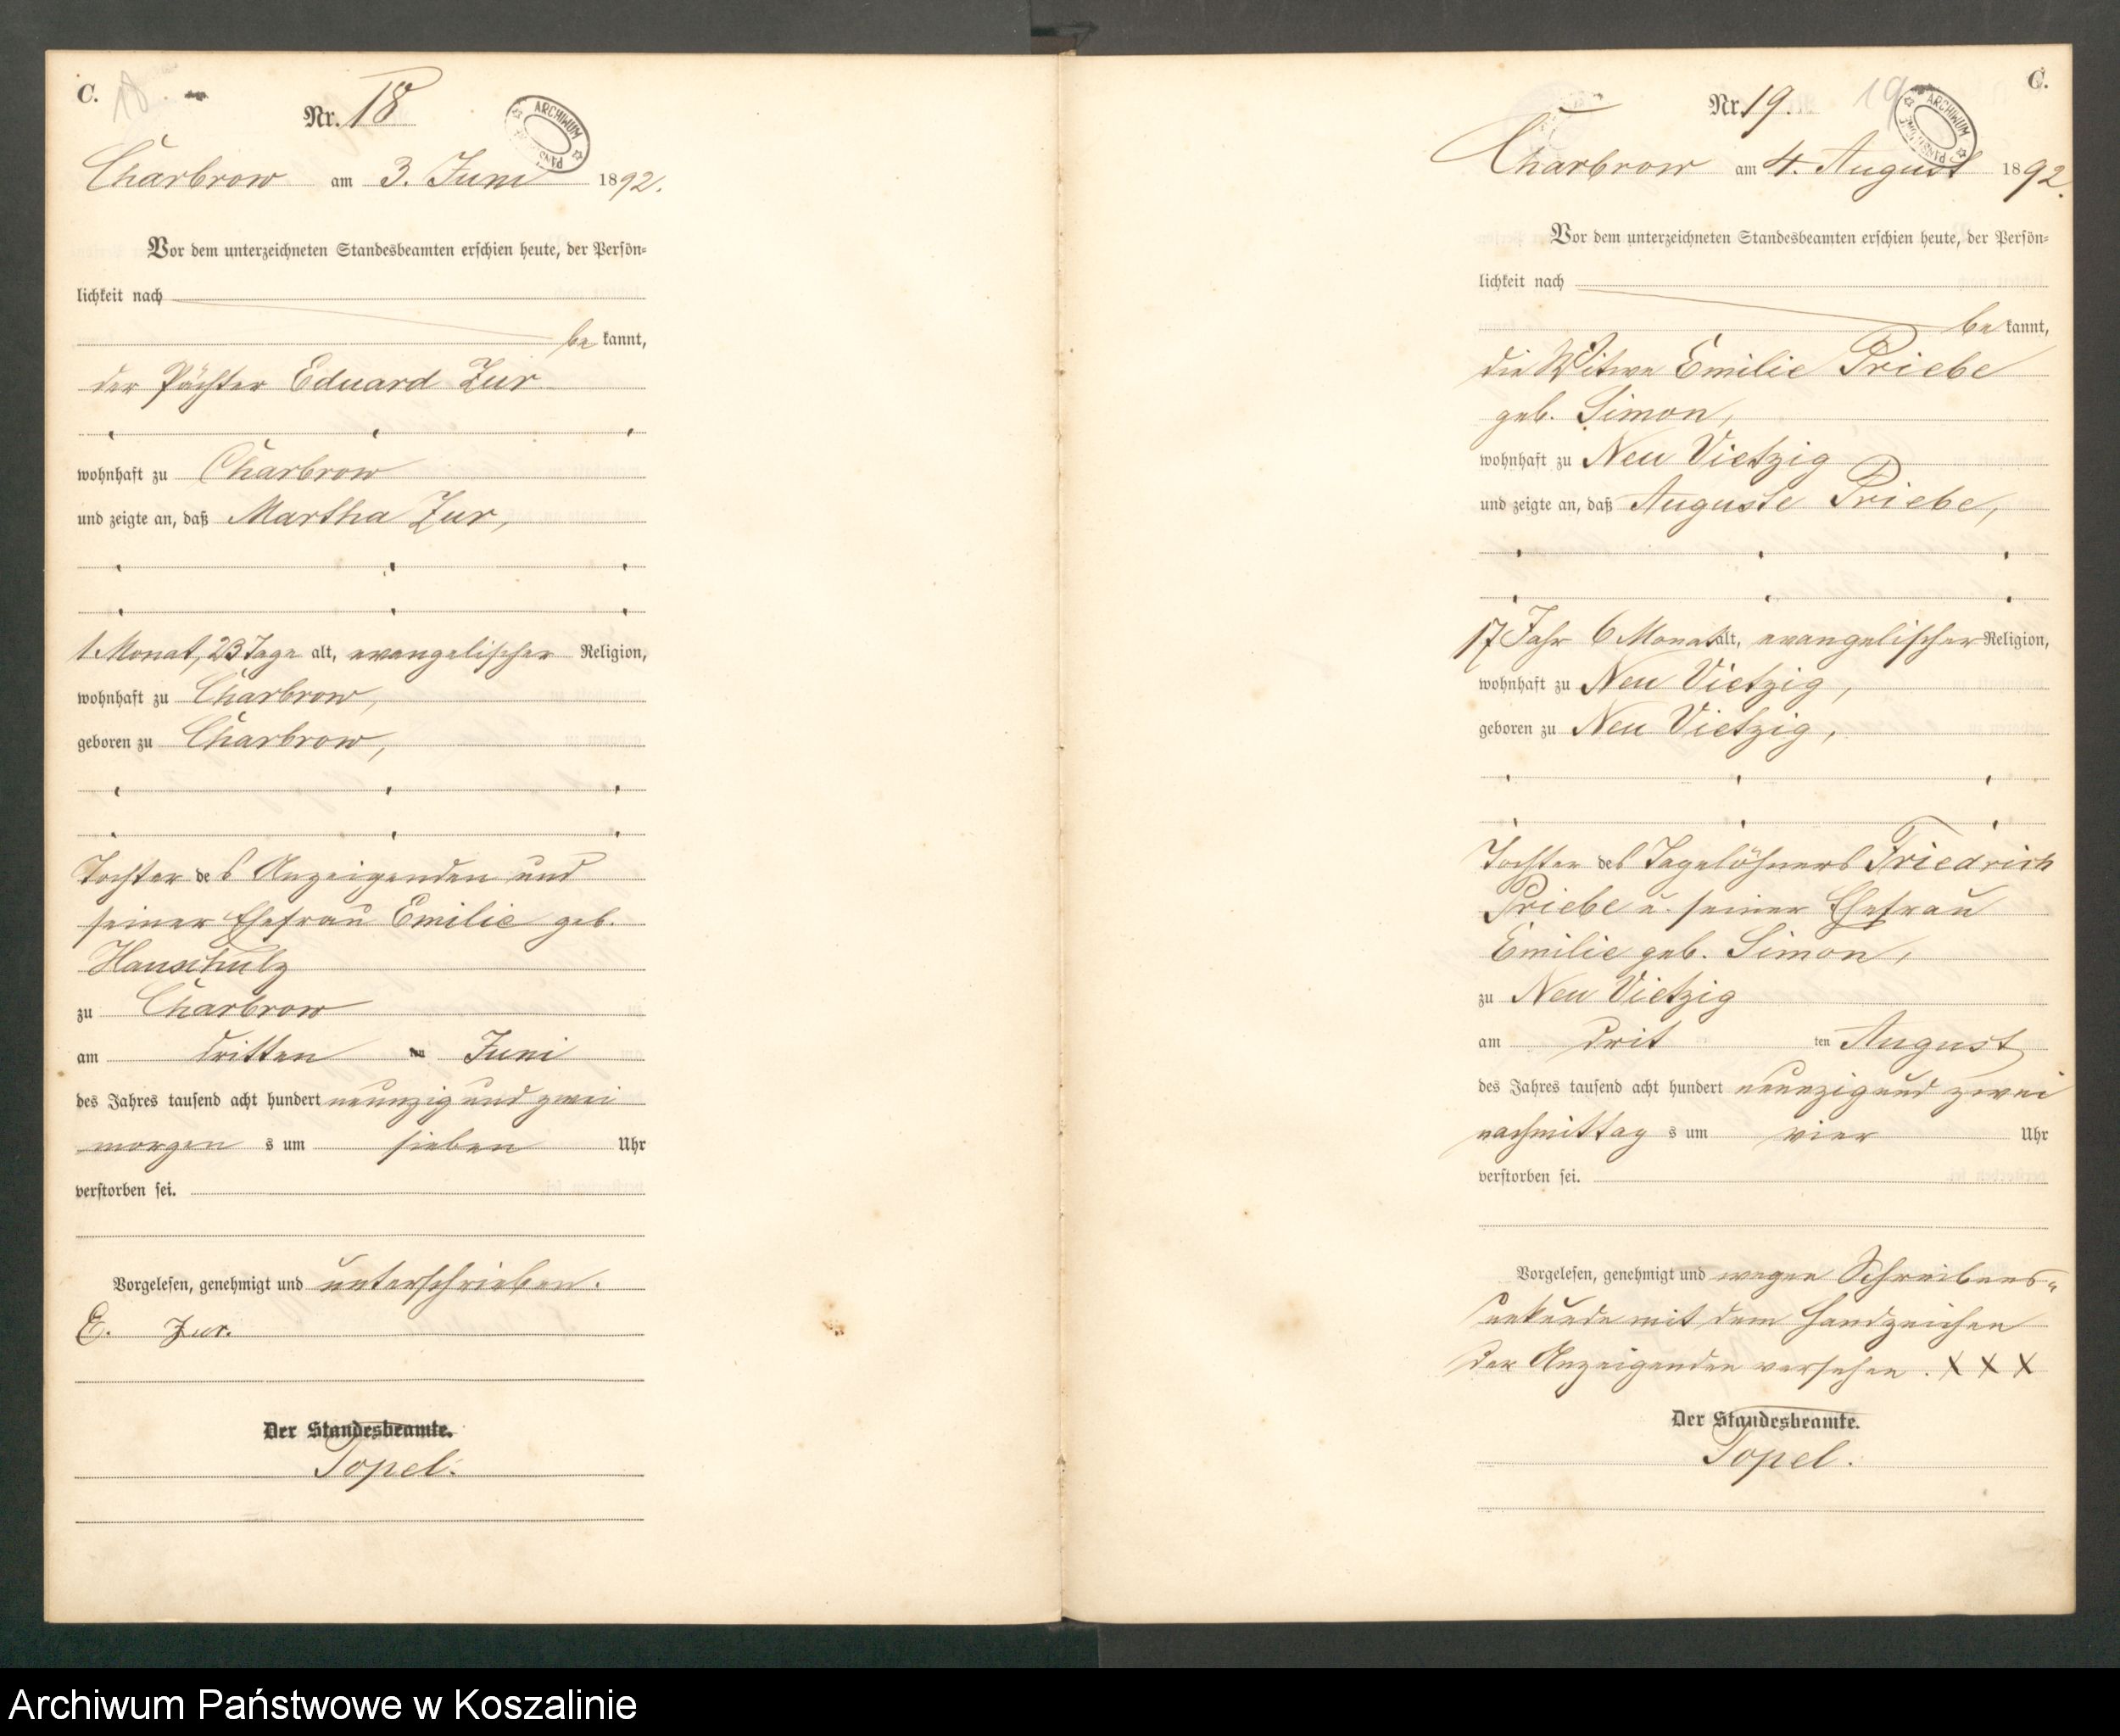 C.
18
Nr. 18
ARCHIWUM
Charbrow am 3. Juni 1892.
Vor dem unterzeichneten Standesbeamten erschien heute, der Persön-
lichkeit nach
be kannt,
der Pächter Eduard Zur
wohnhaft zu Charbrow
und zeigte an, daß Martha Zur,
1 Monat, 23 Tage alt, evangelischer Religion,
wohnhaft zu Charbrow,
geboren zu Charbrow,
Tochter des Anzeigenden und
seiner Ehefrau Emilie geb.
Hanschulz
zu Charbrow
am dritten Juni
des Jahres tausend acht hundert neunzig und zwei
morgen s um sieben Uhr
verstorben sei.
Vorgelesen, genehmigt und unterschrieben.
E. Zur.
Der Standesbeamte.
Topel.
C.
19
Nr. 19.
ARCHIWUM
Charbrow am 4. August 1892.
Vor dem unterzeichneten Standesbeamten erschien heute, der Persön-
lichkeit nach
be kannt,
die Witwe Emilie Priebe
geb. Simon,
wohnhaft zu Neu Vietzig
und zeigte an, daß Auguste Priebe,
17 Jahr 6 Monat alt, evangelischer Religion,
wohnhaft zu Neu Vietzig,
geboren zu Neu Vietzig,
Tochter des Tagelöhners Friedrich
Priebe u. seiner Ehefrau
Emilie geb. Simon,
zu Neu Vietzig
am drit ten August
des Jahres tausend acht hundert neunzig und zwei
nachmittag s um vier Uhr
verstorben sei.
Vorgelesen, genehmigt und wegen Schreibens-
unkunde mit dem Handzeichen
der Anzeigenden versehen. X X X
Der Standesbeamte.
Topel.
Archiwum Państwowe w Koszalinie